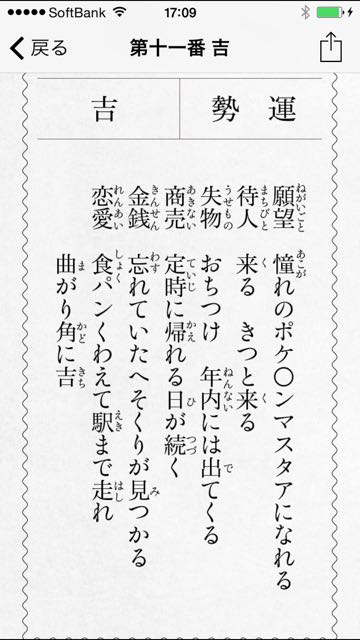 SoftBank 17:09
戻る 第十一番 吉
運勢 吉
願望 憧れのポケ〇ンマスタアになれる
待人 来る きつと来る
失物 おちつけ 年内には出てくる
商売 定時に帰れる日が続く
金銭 忘れていたへそくりが見つかる
恋愛 食パンくわえて駅まで走れ
曲がり角に吉